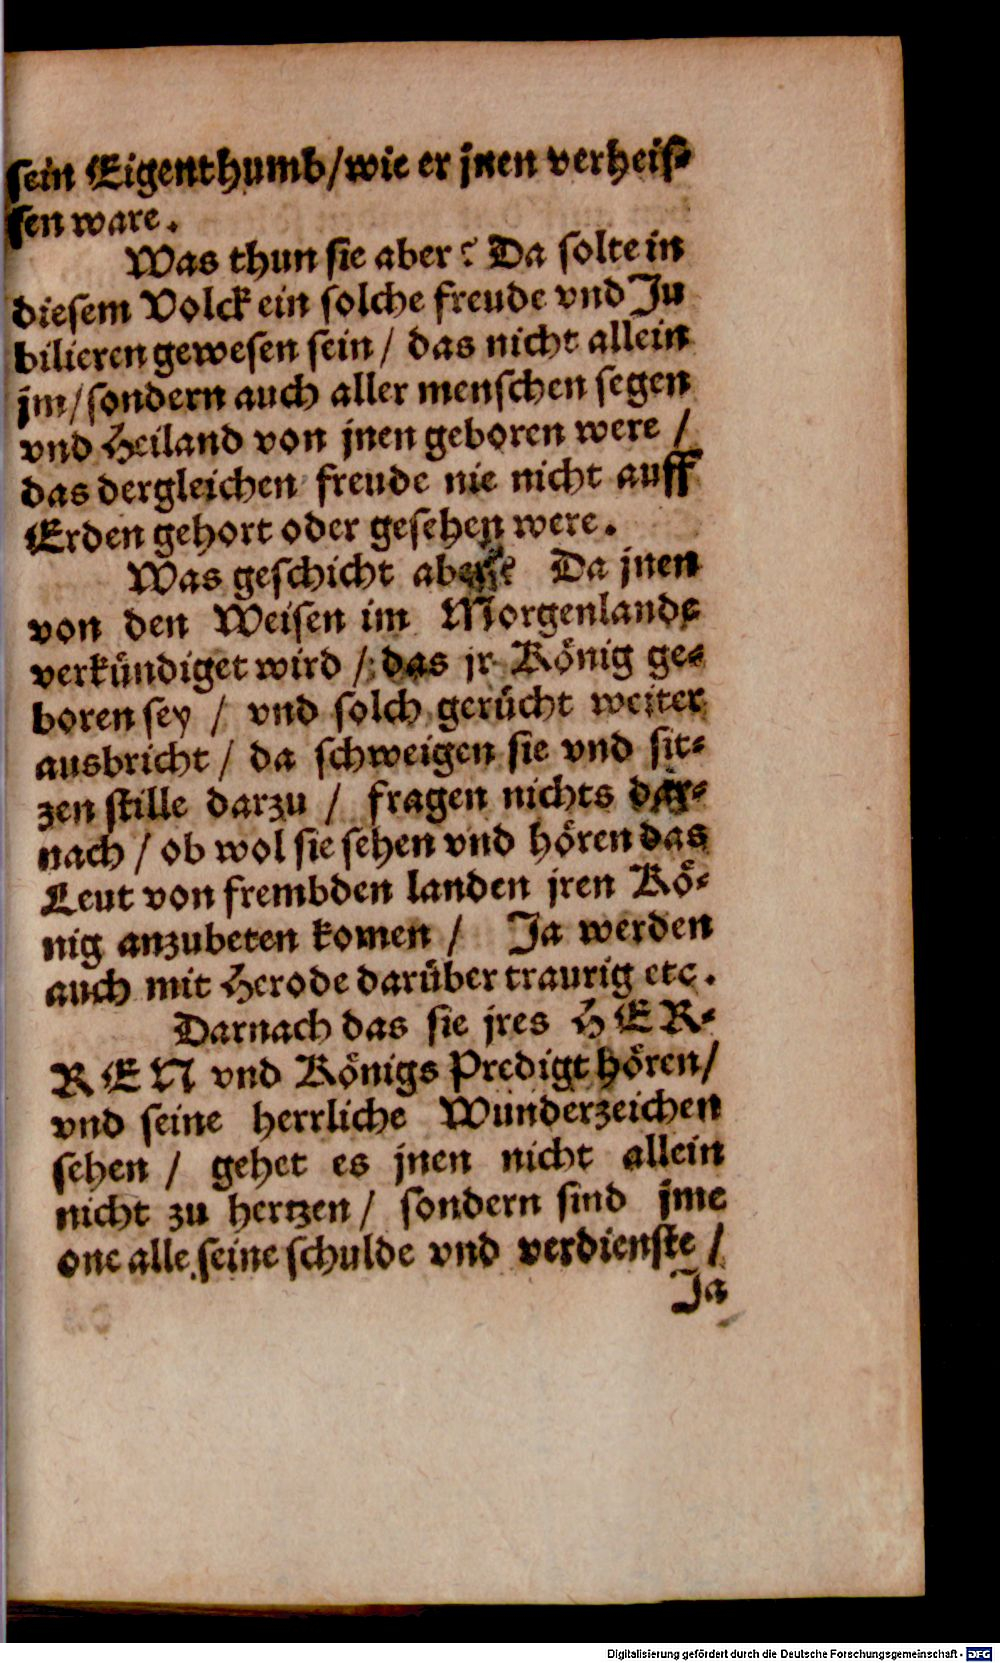 sein Eigenthumb/wie er jnen verheis-
sen ware.
Was thun sie aber? Da solte in
diesem Volck ein solche freude vnd Ju
bilieren gewesen sein / das nicht allein
jm/sondern auch aller menschen segen
vnd Heiland von jnen geboren were /
das dergleichen freude nie nicht auff
Erden gehort oder gesehen were.
Was geschicht aber? Da jnen
von den Weisen im Morgenlande
verkündiget wird / das jr König ge-
boren sey / vnd solch gerücht weiter
ausbricht / da schweigen sie vnd sit-
zen stille darzu / fragen nichts dar-
nach / ob wol sie sehen vnd hören das
Leut von frembden landen jren Kö-
nig anzubeten komen / Ja werden
auch mit Herode darüber traurig etc.
Darnach das sie jres HER-
REN vnd Königs Predigt hören/
vnd seine herrliche Wunderzeichen
sehen / gehet es jnen nicht allein
nicht zu hertzen / sondern sind jme
one alle seine schulde vnd verdienste /
Ja
Digitalisierung gefördert durch die Deutsche Forschungsgemeinschaft - DFG